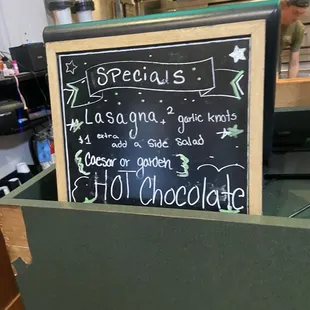 Specials
Lasagna + 2 garlic knots
$1 extra add a side salad
Caesar or garden
HOT Chocolate